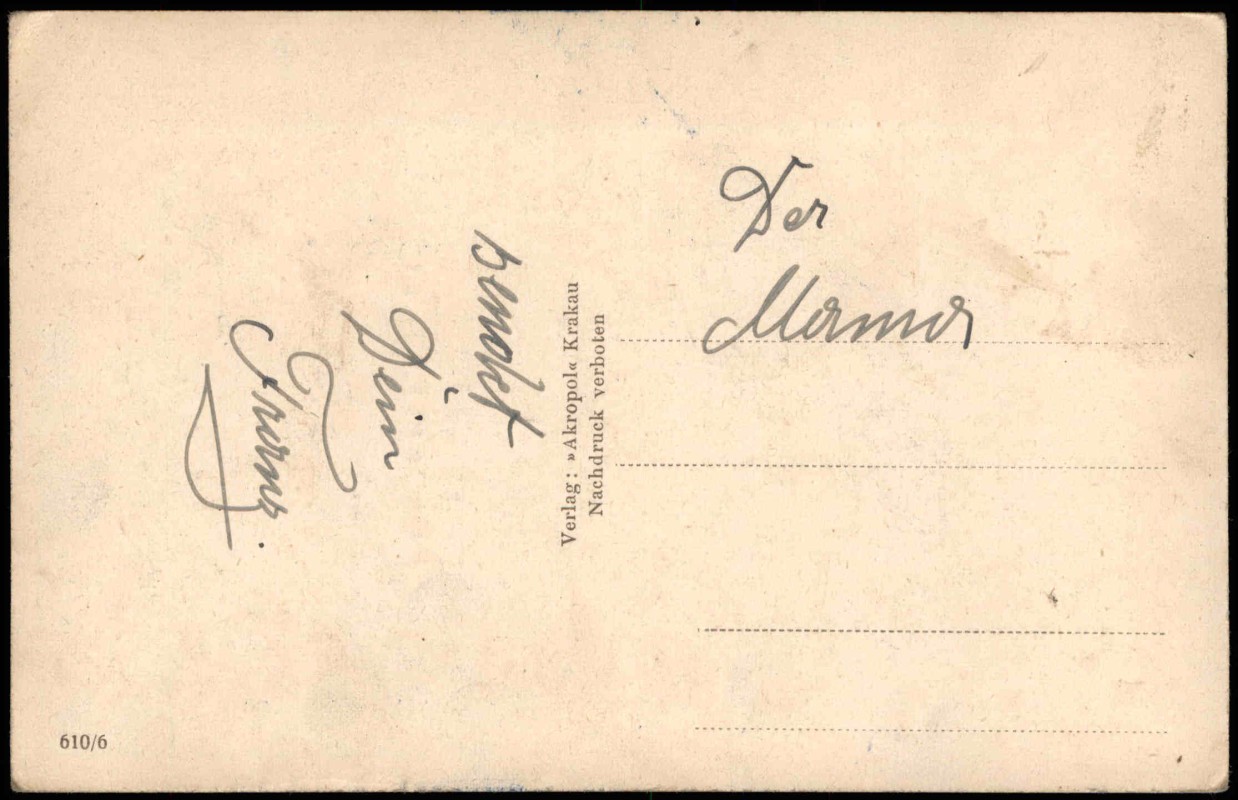 Der
Mama
sendet
Dein
Franz.
Verlag: »Akropol« Krakau
Nachdruck verboten
610/6